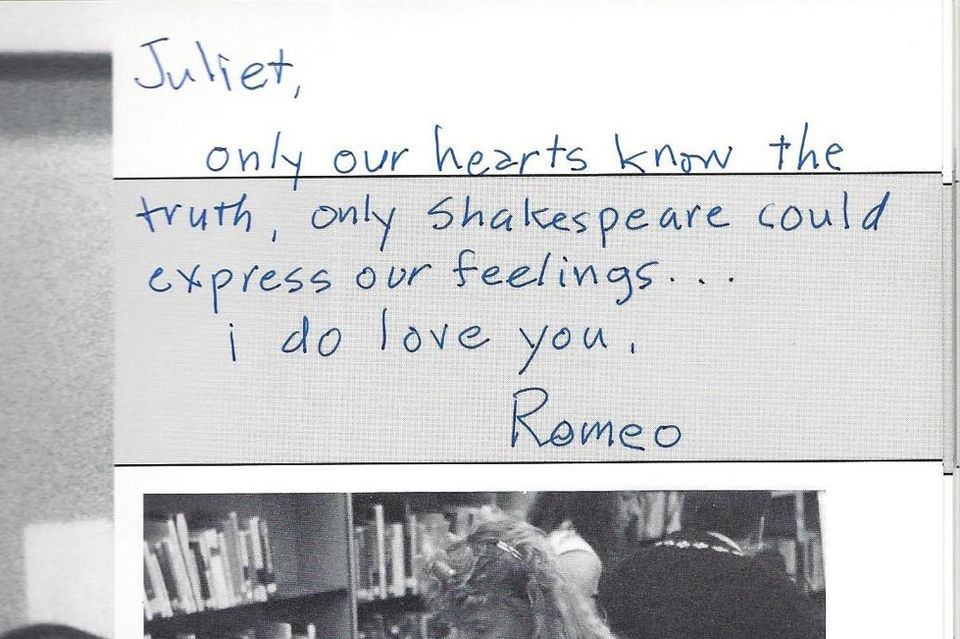 Juliet,
only our hearts know the
truth, only Shakespeare could
express our feelings...
i do love you.
Romeo